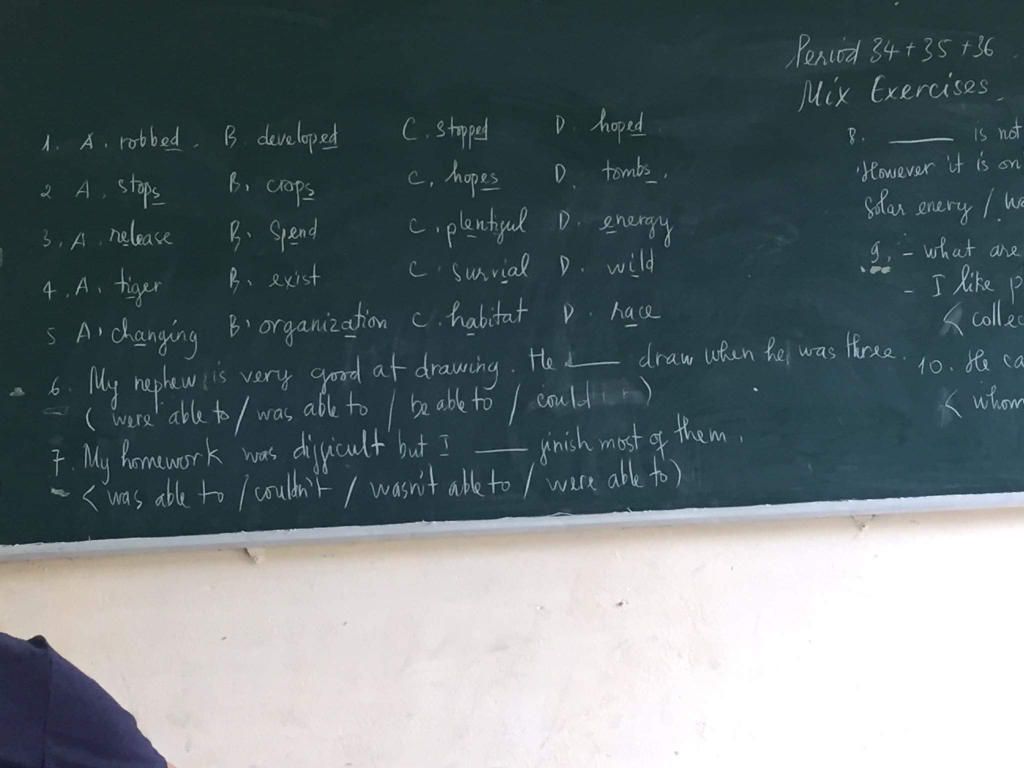 Period 34 + 35 + 36
Mix Exercises
1. A. robbed. B. developed C. stopped D. hoped
2 A. stops B. crops C. hopes D. tombs.
3. A. release B. spend C. plentiful D. energy
4. A. tiger B. exist C. survial D. wild
5 A. changing B. organization C. habitat D. race
6. My nephew is very good at drawing. He ___ draw when he was three.
( were able to / was able to / be able to / could )
7. My homework was difficult but I ___ finish most of them.
( was able to / couldn't / wasn't able to / were able to )
8. ___ is not
However it is on
Solar enery /
9. - what are
- I like p
( collec
10. He ca
( whom